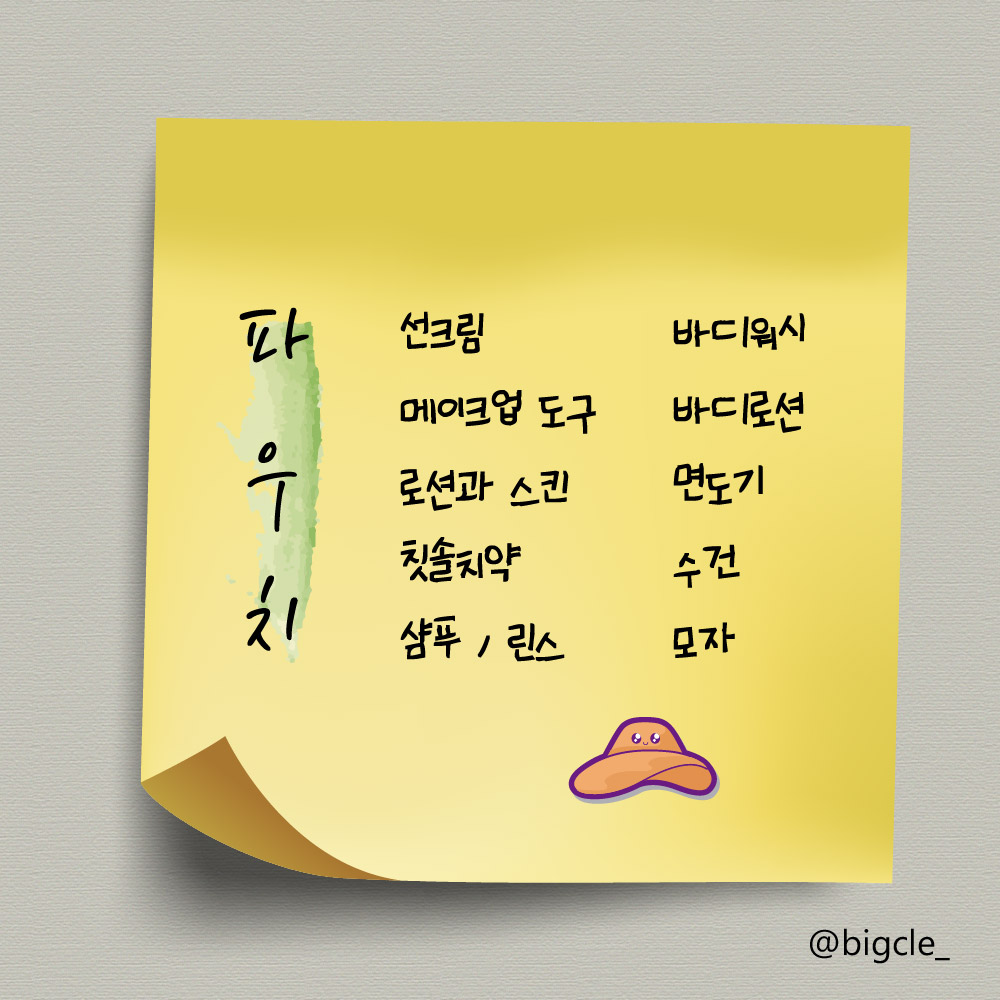 파우치
선크림
메이크업 도구
로션과 스킨
칫솔치약
샴푸 / 린스
바디워시
바디로션
면도기
수건
모자
@bigcle_